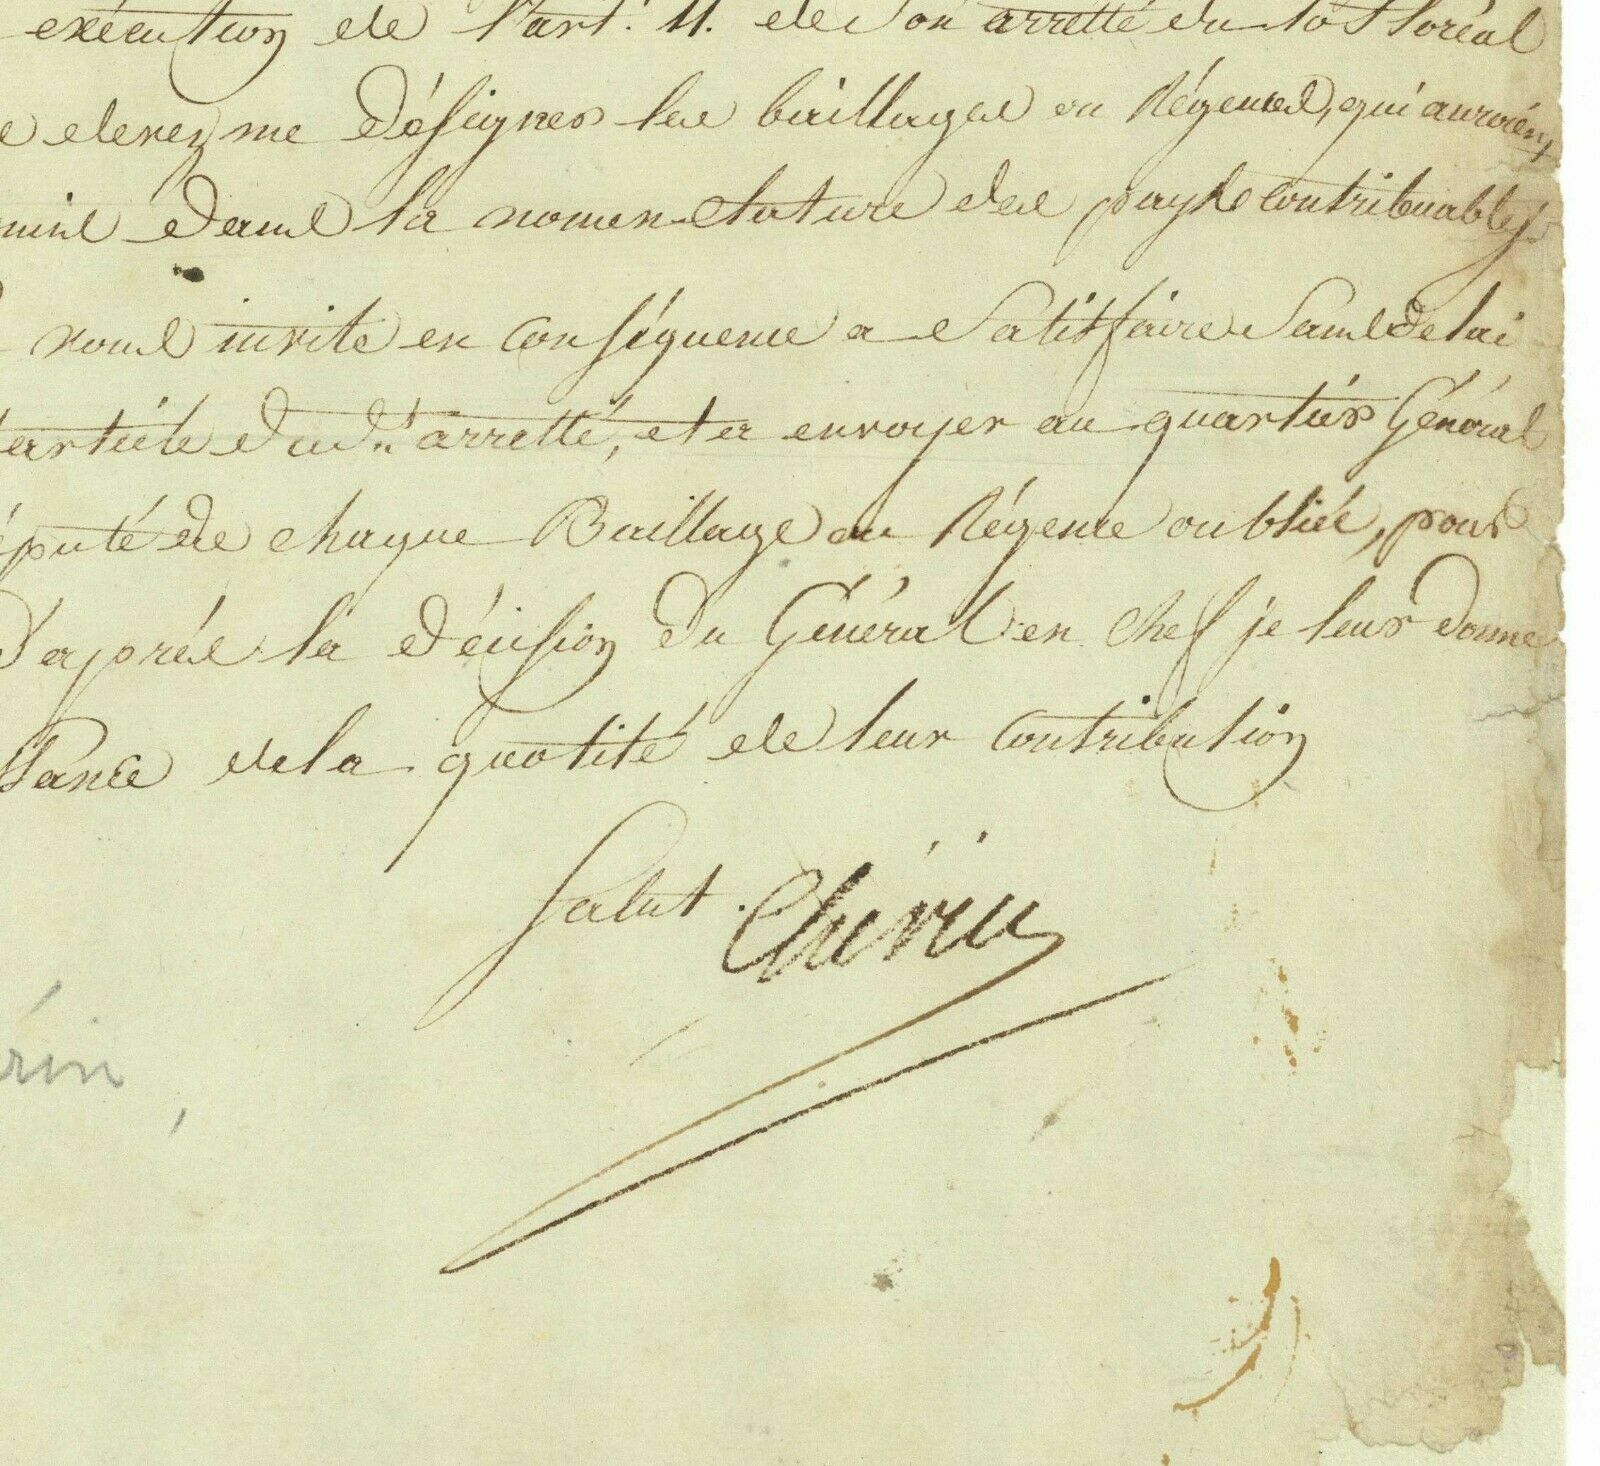 exécution de l'art. 11. de Son arretté du 10 floréal
e devez me désigner les baillages ou Régences, qui auroient
mis dans la nomenclature des pays contribuables
vous invite en conséquence a Satisfaire Sans delai
article du dt arretté, et a envoyer au quartier Général
éputé de chaque Baillage ou Régence oubliée, pour
d'après la décision du Général en chef je leur donne
ssance de la quotité de leur contribution
Salut. Chérin
rin,